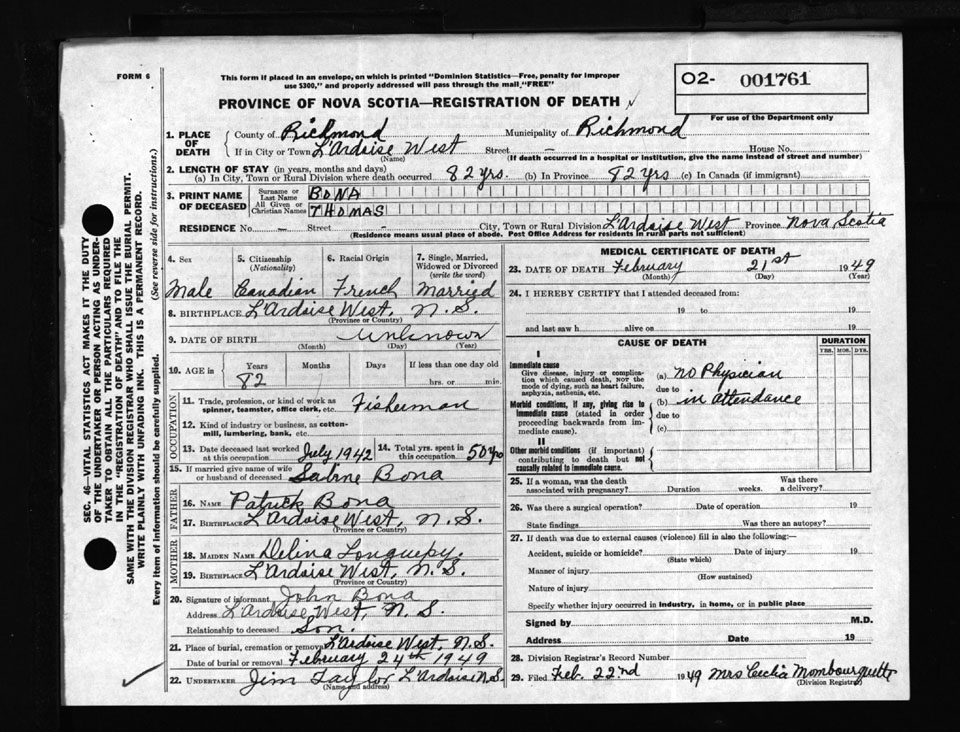 FORM 6
This form if placed in an envelope, on which is printed "Dominion Statistics—Free, penalty for improper
use $300," and properly addressed will pass through the mail "FREE"
PROVINCE OF NOVA SCOTIA—REGISTRATION OF DEATH
O2- 001761
For use of the Department only
1. PLACE OF DEATH
County of Richmond Municipality of Richmond
If in City or Town L'Ardoise West Street — House No.
(Name) (If death occurred in a hospital or institution, give the name instead of street and number)
2. LENGTH OF STAY (in years, months and days)
(a) In City, Town or Rural Division where death occurred 82 yrs. (b) In Province 82 yrs (c) In Canada (if immigrant)
3. PRINT NAME OF DECEASED
Surname or Last Name BONA
All Given or Christian Names THOMAS
RESIDENCE No. — Street - City, Town or Rural Division L'Ardoise West Province Nova Scotia
(Residence means usual place of abode. Post Office Address for residents in rural parts not sufficient)
4. Sex 5. Citizenship (Nationality) 6. Racial Origin 7. Single, Married, Widowed or Divorced (write the word)
Male Canadian French Married
8. BIRTHPLACE L'Ardoise West, N.S.
(Province or Country)
9. DATE OF BIRTH Unknown
(Month) (Day) (Year)
10. AGE in Years Months Days If less than one day old
82 hrs. or min.
OCCUPATION
11. Trade, profession, or kind of work as
spinner, teamster, office clerk, etc. Fisherman
12. Kind of industry or business, as cotton-
mill, lumbering, bank, etc.
13. Date deceased last worked
at this occupation July 1942 14. Total yrs. spent in
this occupation 50 yrs
15. If married give name of wife
or husband of deceased Sabine Bona
FATHER
16. NAME Patrick Bona
17. BIRTHPLACE L'Ardoise West, N.S.
(Province or Country)
MOTHER
18. MAIDEN NAME Delina Longuepy.
19. BIRTHPLACE L'Ardoise West, N.S.
(Province or Country)
20. Signature of informant John Bona
Address L'Ardoise West, N.S.
Relationship to deceased Son.
21. Place of burial, cremation or removal L'Ardoise West, N.S.
Date of burial or removal February 24th 1949
22. UNDERTAKER Jim Taylor L'Ardoise N.S.
(Name and address)
MEDICAL CERTIFICATE OF DEATH
23. DATE OF DEATH February 21st 1949
(Month) (Day) (Year)
24. I HEREBY CERTIFY that I attended deceased from:
19 to 19
and last saw h alive on 19
CAUSE OF DEATH DURATION
YRS. MOS. DYS.
I
Immediate cause
Give disease, injury or complica-
tion which caused death, not the
mode of dying, such as heart failure,
asphyxia, asthenia, etc.
(a) No Physician
due to
Morbid conditions, if any, giving rise to
immediate cause (stated in order
proceeding backwards from im-
mediate cause).
(b) in attendance
due to
(c)
II
Other morbid conditions (if important)
contributing to death but not
causally related to immediate cause.
25. If a woman, was the death
associated with pregnancy? Duration weeks. Was there
a delivery?
26. Was there a surgical operation? Date of operation 19
State findings Was there an autopsy?
27. If death was due to external causes (violence) fill in also the following:—
Accident, suicide or homicide? Date of injury 19
(State which)
Manner of injury
(How sustained)
Nature of injury
Specify whether injury occurred in industry, in home, or in public place
Signed by M.D.
Address Date 19
28. Division Registrar's Record Number
29. Filed Feb. 22nd 1949 Mrs Cecilia Mombourquette
(Division Registrar)
SEC. 46—VITAL STATISTICS ACT MAKES IT THE DUTY
OF THE UNDERTAKER OR PERSON ACTING AS UNDER-
TAKER TO OBTAIN ALL THE PARTICULARS REQUIRED
IN THE "REGISTRATION OF DEATH" AND TO FILE THE
SAME WITH THE DIVISION REGISTRAR WHO SHALL ISSUE THE BURIAL PERMIT.
WRITE PLAINLY WITH UNFADING INK. THIS IS A PERMANENT RECORD.
Every item of information should be carefully supplied. (See reverse side for instructions.)